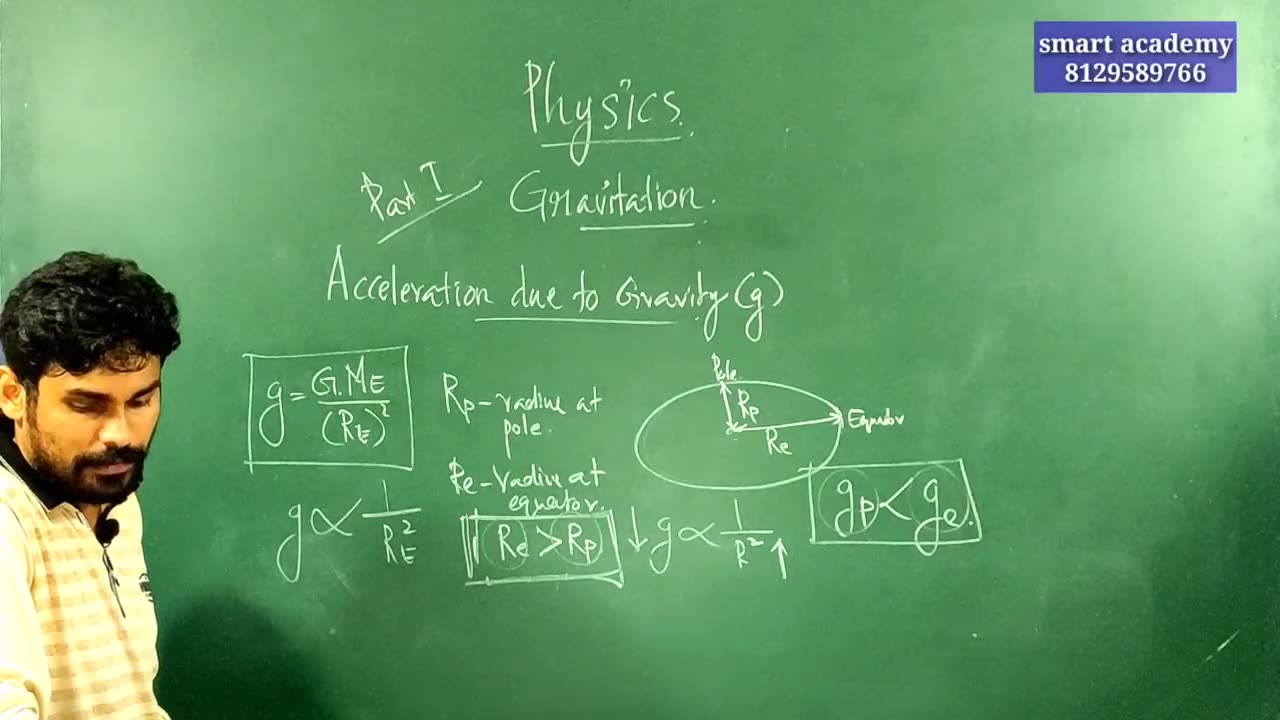 smart academy
8129589766
Physics
Part I
Gravitation.
Acceleration due to Gravity (g)
g = G.M_E / (R_E)²
g ∝ 1 / R_E²
R_p - radius at
pole.
Re - radius at
equator.
Re > R_p
Pole
R_p
Re
Equator
↓ g ∝ 1 / R² ↑
g_p < g_e.